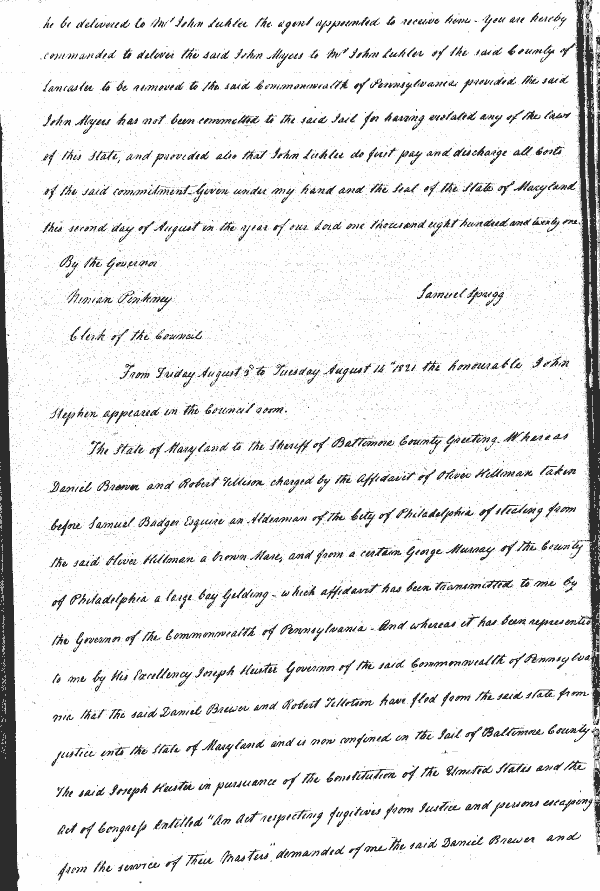 he be delivered to Mr John Lichler the agent appointed to receive him - You are hereby
commanded to deliver the said John Myers to Mr John Lichler of the said County of
Lancaster to be removed to the said Commonwealth of Pennsylvania provided the said
John Myers has not been committed to the said Jail for having violated any of the laws
of this State, and provided also that John Lichler do first pay and discharge all Costs
of the said commitment. Given under my hand and the Seal of the State of Maryland
this second day of August in the year of our Lord one thousand eight hundred and twenty one.
By the Governor
Ninian Pinkney Samuel Sprigg
Clerk of the Council
From Friday August 3d to Tuesday August 14th 1821 the honourable John
Stephen appeared in the Council room.
The State of Maryland to the Sheriff of Baltimore County Greeting. Whereas
Daniel Brewer and Robert Tillison charged by the Affidavit of Oliver Hillman taken
before Samuel Badger Esquire an Alderman of the City of Philadelphia of steeling from
the said Oliver Hillman a brown Mare, and from a certain George Murray of the County
of Philadelphia a large bay Gelding - which affidavit has been transmitted to me by
the Governor of the Commonwealth of Pennsylvania - And whereas it has been represented
to me by His Excellency Joseph Heister Governor of the said Commonwealth of Pennsylva
nia that the said Daniel Brewer and Robert Tillotson have fled from the said state from
justice into the State of Maryland and is now confined in the Jail of Baltimore County.
The said Joseph Heister in pursuance of the Constitution of the United States and the
Act of Congress Entitled "An Act respecting fugitives from Justice and persons escaping
from the service of their Masters" demanded of me the said Daniel Brewer and